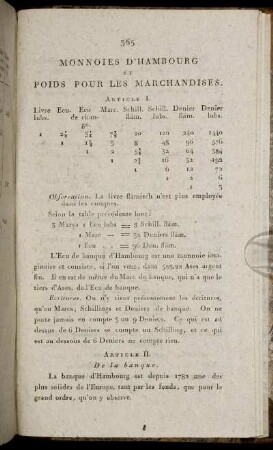 365
MONNOIES D'HAMBOURG
ET
POIDS POUR LES MARCHANDISES.
ARTICLE I.
Livre Ecu. Ecu Marc. Schill. Schill. Denier Denier
lubs. de flám. lubs. flám. lubs.
1 2½ 7½ 20 120 240 1440
1 8 48 96 576
1 2 32
1 16 32 192
1 6 12 72
1 2 12
1 2 6
1 3
Observation. La livre flämisch n'est plus employée
dans les comptes.
Selon la table précédente font:
3 Marcs 1 Ecu lubs = 8 Schill. fläm.
1 Marc = 32 Deniers fläm.
1 Ecu = 96 Den. fläm.
L'Ecu de banque d'Hambourg est une monnoie ima-
ginaire et consiste, si l'on veut, dans Ases argent
fin. Il en est de même du Marc de banque, qui n'a que le
tiers d'Ases, de l'Ecu de banque.
Ecritures. On n'y tient présentement les écritures,
qu'en Marcs, Schillings et Deniers de banque. On ne
porte jamais en compte 3 ou 9 Deniers. Ce qui est au
dessus de 6 Deniers se compte un Schilling, et ce qui
est au dessous de 6 Deniers ne compte rien.
ARTICLE II.
De la banque.
La banque d'Hambourg est depuis une des
plus solides de l'Europe, tant par les fonds, que pour le
grand ordre, qu'on y observe.